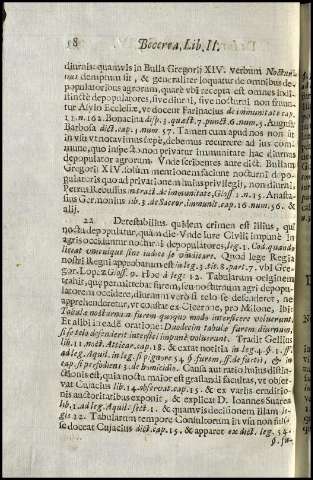 58 Becerra, Lib. II.
diurnis: quamvis in Bulla Gregorii XIV. verbum Noctur
nus demptum sit, & generaliter loquatur de omnibus de-
populatoribus agrorum, quare vbi recepta est omnes indi-
stinctè depopulatores, sive diurni, sive nocturni non fruun-
tur Asylo Ecclesiæ, vt docent Farinacius de immunitate cap.
13. n. 162. Bonacina disp. 3. quæst. 7. punct. 6. num. 5. August.
Barbosa dict. cap. num 57. Tamen cum apud nos non sit
in vsu
mune, quo inspecto non privatur immunitate hac diurnus
depopulator agrorum. Vnde scribentes ante dict. Bullam
Gregorii XIV. solum mentionem faciunt nocturni depo-
pulatoris quo ad privationem huius privilegii, non diurni
Petrus Rebuffus in tract. de immunitate, Gloss 1. n. 15. Anasta-
sius Germonius lib. 3. de Sacror. immunit. cap. 16 num. 56. &
alij.
22 Detestabilius quidem crimen est illius, qui
nocte depopulatur, quàm die. Vnde iure Civili impunè in
agris occiduntur nocturni depopulatores, leg. 1. Cod. quando
liceat unicuique sine iudice se vindicare. Quod lege Regia
nostri Regni approbatum est in leg. 3. tit. 8. part. 7. vbi Gre-
gor. Lopez Gloss 9. Hoc à lege 12. Tabularum originem
trahit, quæ permittebat furem, seu nocturnum agri depopu-
latorem occidere, diurnum verò si telo se defenderet, ne
apprehenderetur, vt constat ex Cicerone, pro Milone, ibi:
Tabula nocturnum furem quoquo modo interficere voluerunt.
Et alibi in eadē oratione: Duodecim tabulæ furem diurnum,
si se telo defenderet interfici impunè voluerunt. Tradit Gellius
lib. 11. noct. Atticar. cap. 18. & extat notitia in leg. 4. §. 1. ff.
ad leg. Aquil. in leg. si pignore 54. § furem, ff. de furtis, & in
cap. si perfodiens 3. de homicidio. Causa aut ratio huius distin-
ctionis est, quia nocte maior est grassandi facultas, vt obser-
vat Cujacius lib. 14. observat. cap. 15. & ex variis eruditio-
nis auctoritatibus exponit, & explicat D. Ioannes Suarez
lib. 1. ad leg. Aquil. sect. 1. & quamvis decisionem illam le-
gis 12. Tabularum tempore Consultorum in vsu non fuis-
se doceat Cujacius dict. cap. 15. & apparet ex dict. leg. 54.
§. fu-